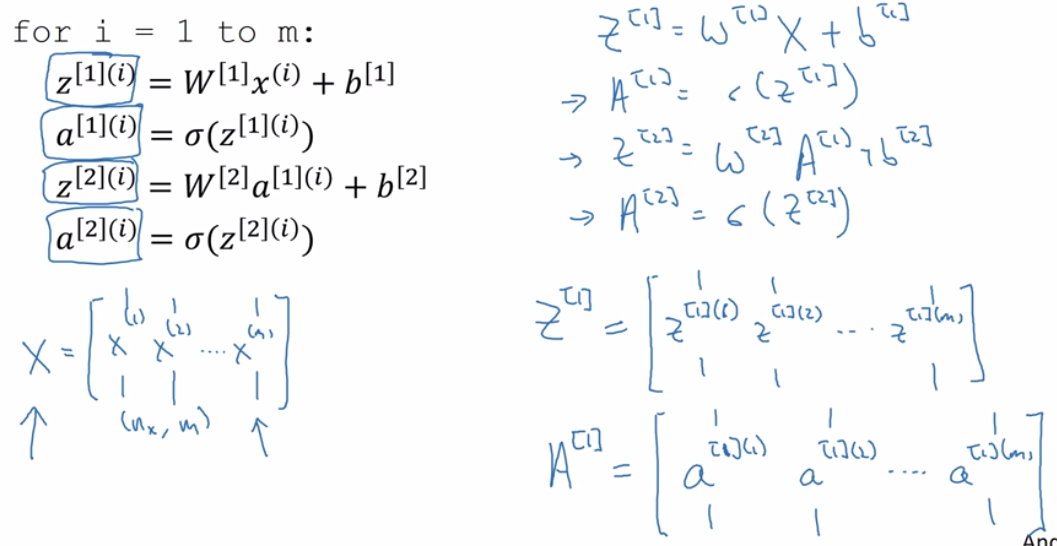 for i = 1 to m:
z^{[1](i)} = W^{[1]}x^{(i)} + b^{[1]}
a^{[1](i)} = σ(z^{[1](i)})
z^{[2](i)} = W^{[2]}a^{[1](i)} + b^{[2]}
a^{[2](i)} = σ(z^{[2](i)})
X = [ x^{(1)} x^{(2)} .... x^{(m)} ]
(n_x, m)
Z^{[1]} = W^{[1]} X + b^{[1]}
→ A^{[1]} = σ(Z^{[1]})
→ Z^{[2]} = W^{[2]} A^{[1]} + b^{[2]}
→ A^{[2]} = σ(Z^{[2]})
Z^{[1]} = [ z^{[1](1)} z^{[1](2)} ... z^{[1](m)} ]
A^{[1]} = [ a^{[1](1)} a^{[1](2)} .... a^{[1](m)} ]